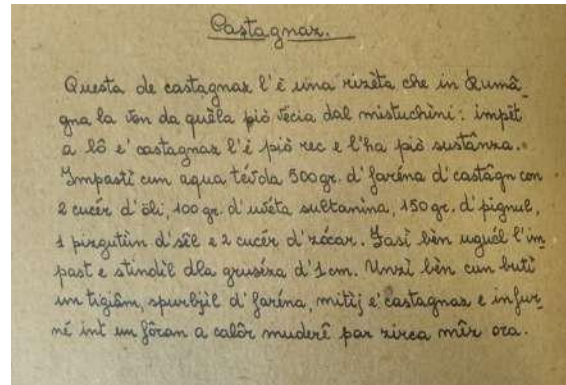 Castagnaz.
Questa de castagnaz l'è una rizèta che in Rumâ-
gna la ven da quèla piò vècia dal mistuchini: impët
a lô e' castagnaz l'è piò rec e l'ha piò sustânza.
Impastì cun aqua tévda 500gr. d'faréna d'castâgn con
2 cucér d'öli, 100gr. d'uvéta sultanina, 150gr. d'pignul,
1 pizgutìn d'sêl e 2 cucér d'zócar. Fasì bèn uguél l'im-
past e stindìl dla gruséza d'1cm. Unzì bèn cun buti
um tigiâm, spurbjìl d'faréna, mitìj e' castagnaz e infur-
né int um fóran a calôr muderê par zirca mêz ora.